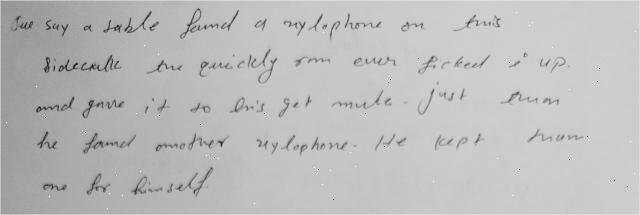 Sue say a sable found a xylophone on this
sidewalk the quickly ran over picked i up.
and gave it to his get mule. just than
he found another xylophone. He kept than
one for himself.